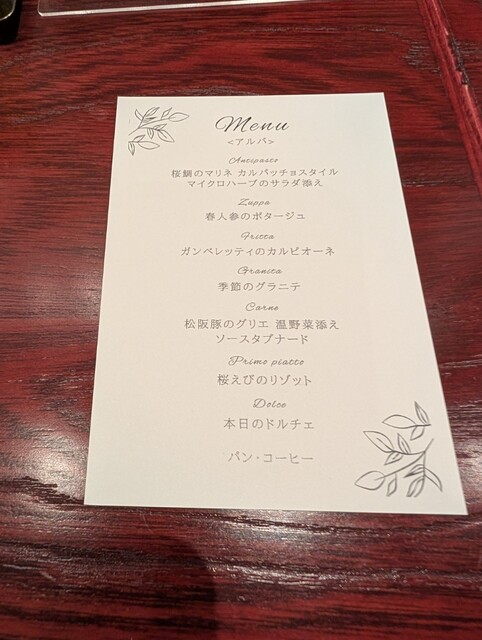 Menu
<アルバ>
Antipasto
桜鯛のマリネ カルパッチョスタイル
マイクロハーブのサラダ添え
Zuppa
春人参のポタージュ
Fritto
ガンベレッティのカルピオーネ
Granita
季節のグラニテ
Carne
松阪豚のグリエ 温野菜添え
ソースタプナード
Primo piatto
桜えびのリゾット
Dolce
本日のドルチェ
パン・コーヒー